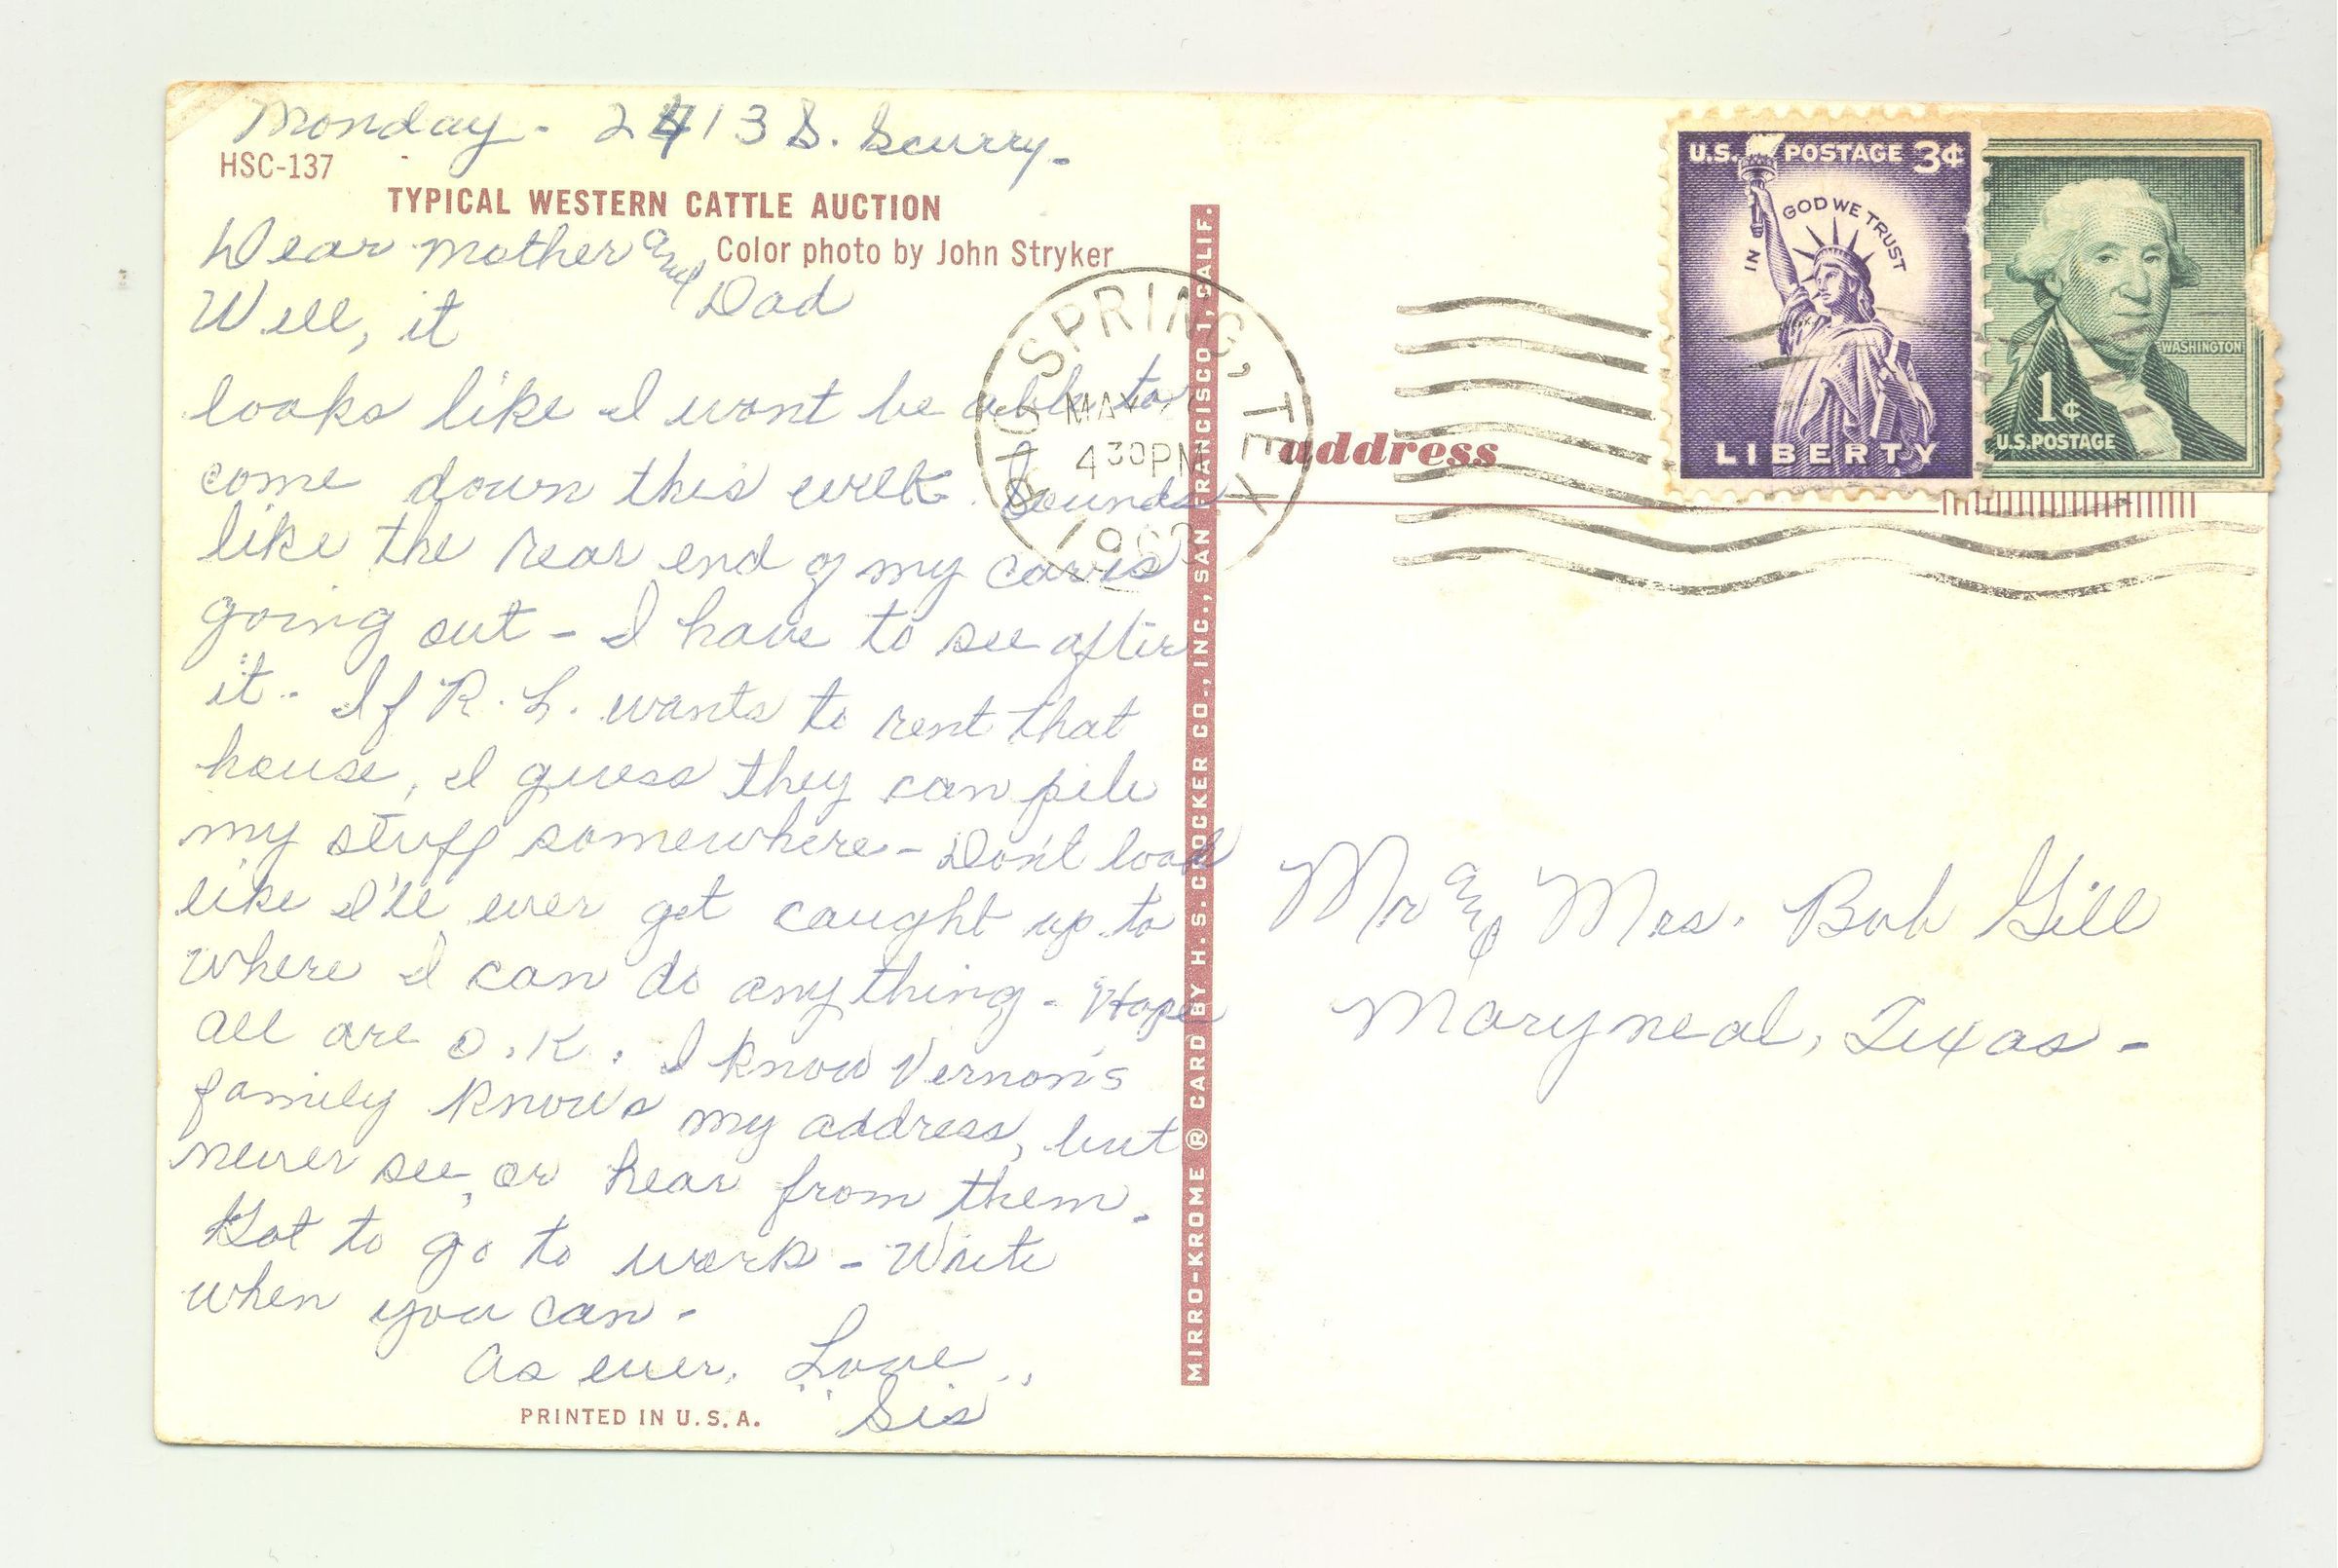 Monday - 2413 S. Scurry -
HSC-137
TYPICAL WESTERN CATTLE AUCTION
Color photo by John Stryker
Dear Mother and Dad
Well, it
looks like I wont be able to
come down this week. Sounds
like the rear end of my car is
going out - I have to see after
it - If R. L. wants to rent that
house, I guess they can pile
my stuff somewhere - Don't look
like I'll ever get caught up to
where I can do anything - Hope
all are O.K. I know Vernon's
family knows my address, but
never see or hear from them.
Got to go to work - Write
when you can -
As ever, Love
Sis
PRINTED IN U.S.A.
MIRRO-KROME ® CARD BY H. S. CROCKER CO., INC., SAN FRANCISCO 1, CALIF.
BIG SPRING, TEX
MAY
4 30 PM
U.S. POSTAGE 3¢
IN GOD WE TRUST
LIBERTY
WASHINGTON
1¢
U.S. POSTAGE
address
Mr and Mrs. Bob Gill
Maryneal, Texas -